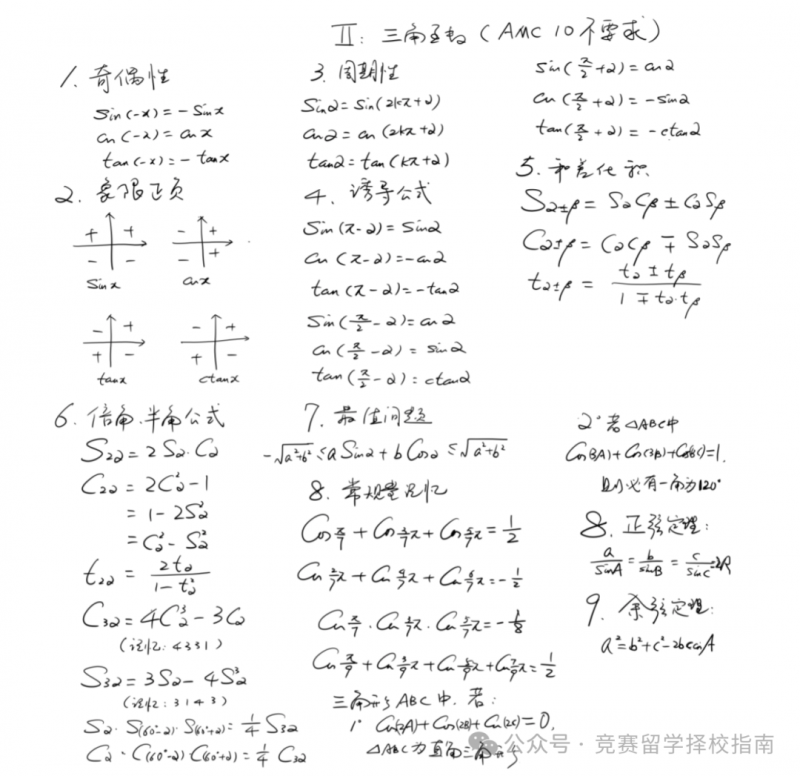 II: 三角函数 (AMC 10不要求)
1. 奇偶性
sin(-x) = -sinx
cos(-x) = cosx
tan(-x) = -tanx
2. 象限正负
+ +
- -
sinx
- +
- +
cosx
- +
+ -
tanx
- +
+ -
ctanx
3. 周期性
sinα = sin(2kπ+α)
cosα = cos(2kπ+α)
tanα = tan(kπ+α)
4. 诱导公式
sin(π-α) = sinα
cos(π-α) = -cosα
tan(π-α) = -tanα
sin(π/2-α) = cosα
cos(π/2-α) = sinα
tan(π/2-α) = ctanα
sin(π/2+α) = cosα
cos(π/2+α) = -sinα
tan(π/2+α) = -ctanα
5. 和差化积
Sα±β = SαCβ ± CαSβ
Cα±β = CαCβ ∓ SαSβ
tα±β = (tα ± tβ)/(1 ∓ tα·tβ)
6. 倍角.半角公式
S2α = 2Sα·Cα
C2α = 2C²α-1
= 1-2S²α
= C²α-S²α
t2α = 2tα/(1-t²α)
C3α = 4C³α-3Cα
(记忆: 4331)
S3α = 3Sα-4S³α
(记忆: 3143)
Sα·S(60°-α)·S(60°+α) = 1/4 S3α
Cα·C(60°-α)·C(60°+α) = 1/4 C3α
7. 最值问题
-√(a²+b²) ≤ a Sinα + b Cosα ≤ √(a²+b²)
8. 常规量记忆
Cos π/7 + Cos 3/7π + Cos 5/7π = 1/2
Cos 2/7π + Cos 4/7π + Cos 6/7π = -1/2
Cos π/7 · Cos 3/7π · Cos 5/7π = -1/8
Cos π/9 + Cos 3/9π + Cos 5/9π + Cos 7/9π = 1/2
三角形ABC中, 若:
1° Cos(2A)+Cos(2B)+Cos(2C)=0,
△ABC为直角三角形
2° 若△ABC中
Cos(3A)+Cos(3B)+Cos(3C)=1.
则必有一角为120°
8. 正弦定理:
a/sinA = b/sinB = c/sinC = 2R
9. 余弦定理:
a²=b²+c²-2bc cosA
公众号 · 竞赛留学择校指南